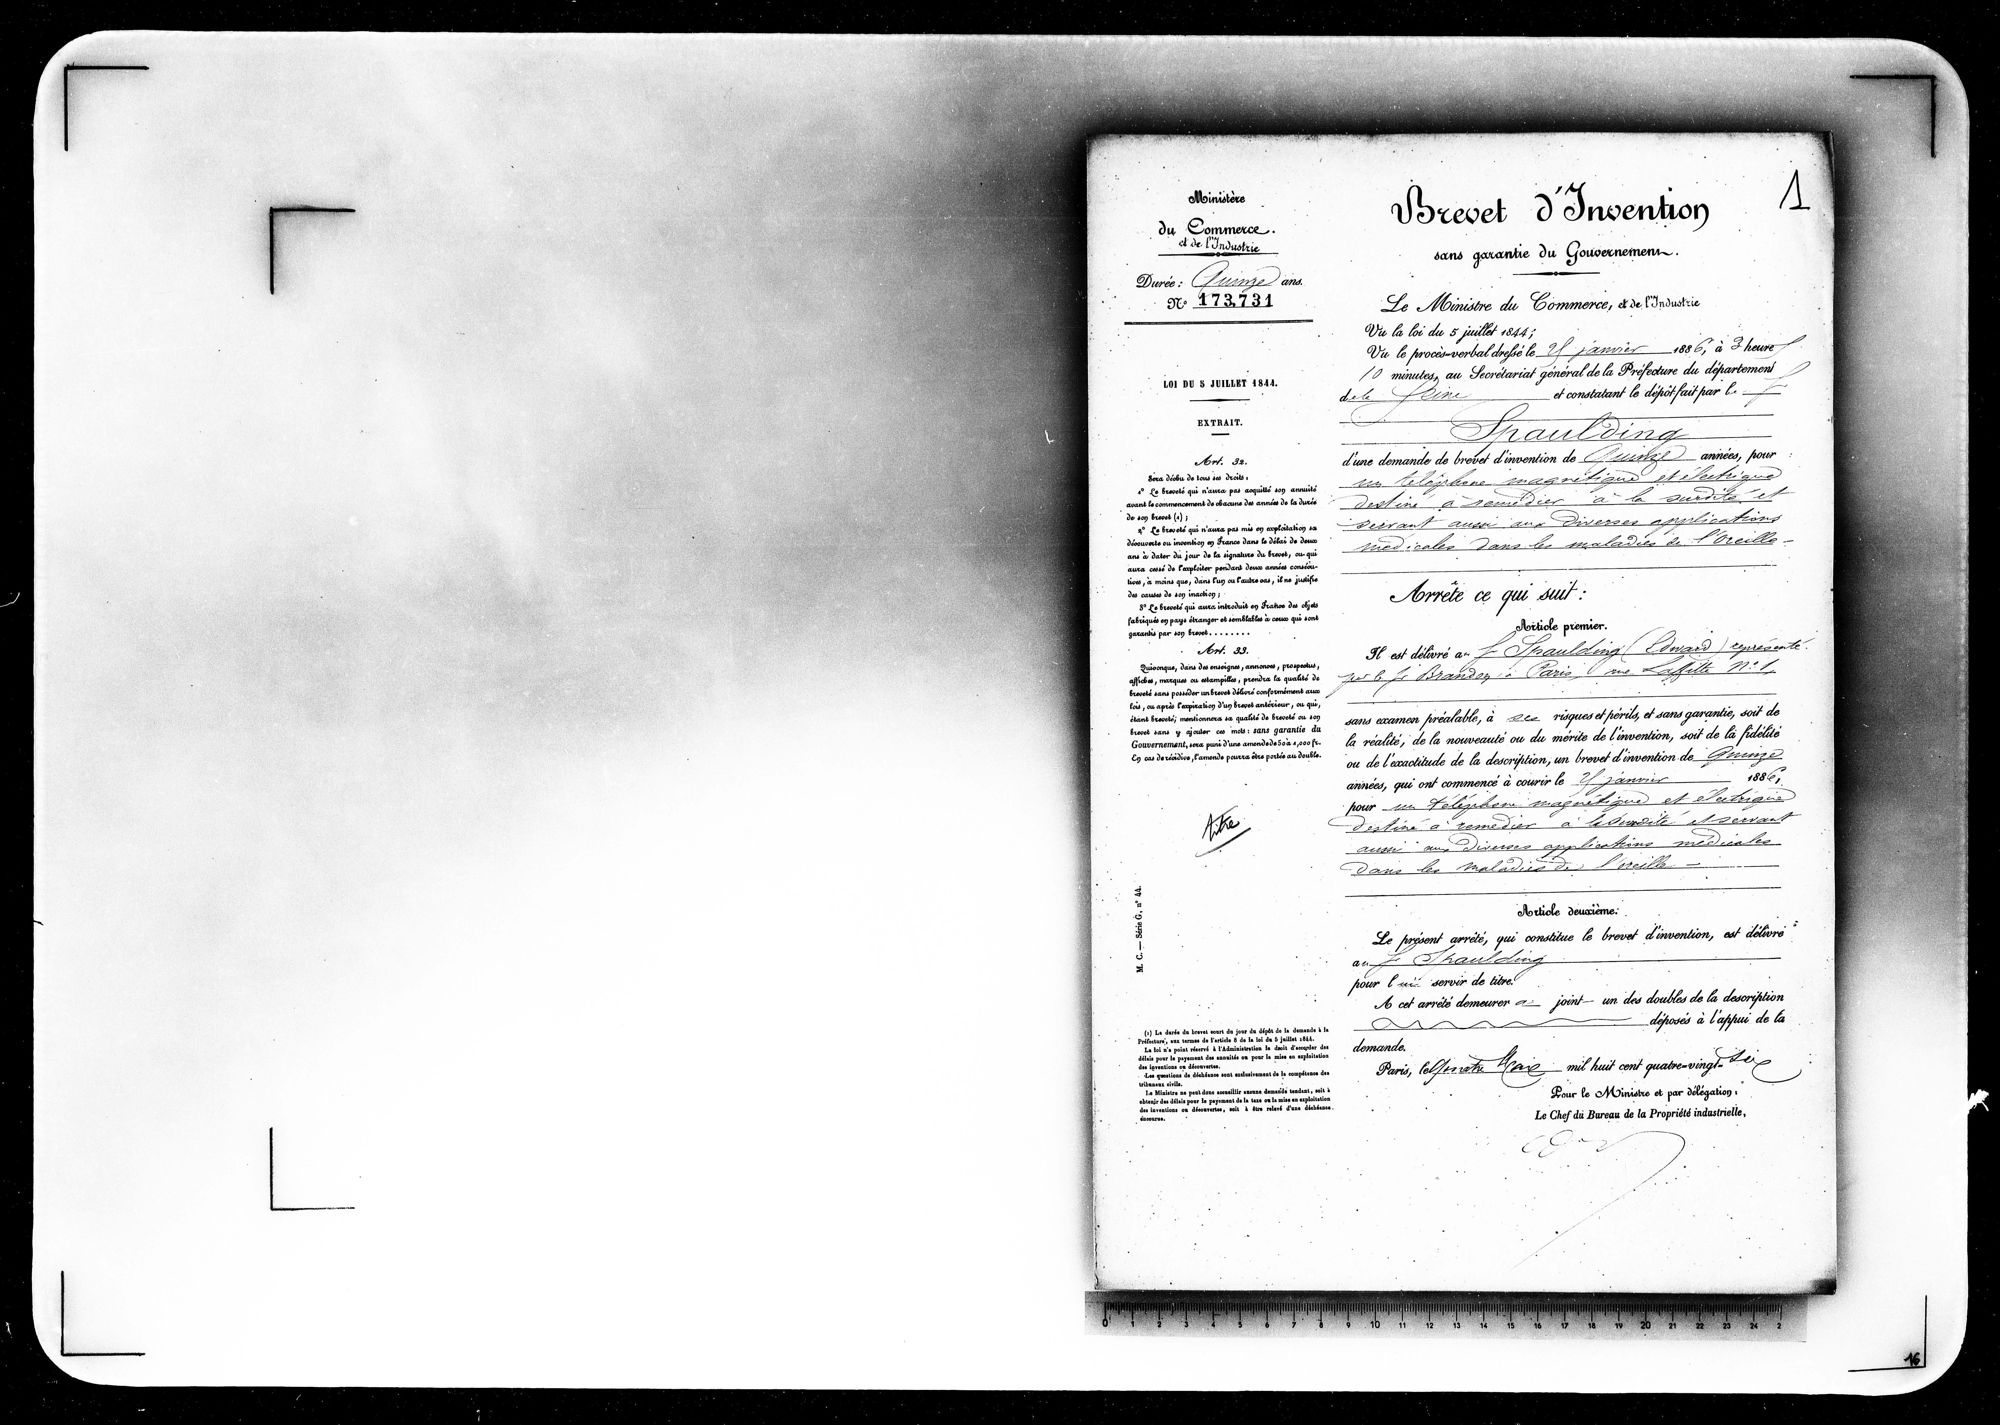 Ministère
du Commerce.
et de l'Industrie
Durée: Quinze ans.
N° 173,731
LOI DU 5 JUILLET 1844.
EXTRAIT.
Art. 32.
Sera déchu de tous ses droits:
1° Le breveté qui n'aura pas acquitté son annuité
avant le commencement de chacune des années de la durée
de son brevet (1);
2° Le breveté qui n'aura pas mis en exploitation sa
découverte ou invention en France dans le délai de deux
ans à dater du jour de la signature du brevet, ou qui
aura cessé de l'exploiter pendant deux années consécu-
tives, à moins que, dans l'un ou l'autre cas, il ne justifie
des causes de son inaction;
3° Le breveté qui aura introduit en France des objets
fabriqués en pays étranger et semblables à ceux qui sont
garantis par son brevet........
Art. 33.
Quiconque, dans des enseignes, annonces, prospectus,
affiches, marques ou estampilles, prendra la qualité de
breveté sans posséder un brevet délivré conformément aux
lois, ou après l'expiration d'un brevet antérieur, ou qui,
étant breveté, mentionnera sa qualité de breveté ou son
brevet sans y ajouter ces mots: sans garantie du
Gouvernement, sera puni d'une amende de 50 à 1,000 fr.
En cas de récidive, l'amende pourra être portée au double.
Titre
M. C. — Série G, n° 44.
(1) La durée du brevet court du jour du dépôt de la demande à la
Préfecture, aux termes de l'article 8 de la loi du 5 juillet 1844.
La loi n'a point réservé à l'Administration le droit d'accorder des
délais pour le payement des annuités ou pour la mise en exploitation
des inventions ou découvertes.
Les questions de déchéance sont exclusivement de la compétence des
tribunaux civils.
Le Ministre ne peut donc accueillir aucune demande tendant, soit à
obtenir des délais pour le payement de la taxe ou la mise en exploitation
des inventions ou découvertes, soit à être relevé d'une déchéance
encourue.
1
Brevet d'Invention
sans garantie du Gouvernement.
Le Ministre du Commerce, et de l'Industrie
Vu la loi du 5 juillet 1844;
Vu le procès-verbal dressé le janvier 1886, à 3 heures
10 minutes, au Secrétariat général de la Préfecture du département
de la Seine et constatant le dépôt fait par le S.
Spaulding
d'une demande de brevet d'invention de Quinze années, pour
un téléphone magnétique et électrique
destiné à remédier à la surdité et
servant aussi aux diverses applications
médicales dans les maladies de l'oreille
Arrête ce qui suit:
Article premier.
Il est délivré au S. Spaulding (Edward) représenté
par le S. Brandon à Paris, rue Laffitte N° 1,
sans examen préalable, à ses risques et périls, et sans garantie, soit de
la réalité, de la nouveauté ou du mérite de l'invention, soit de la fidélité
ou de l'exactitude de la description, un brevet d'invention de Quinze
années, qui ont commencé à courir le janvier 1886,
pour un téléphone magnétique et électrique
destiné à remédier à la surdité et servant
aussi aux diverses applications médicales
dans les maladies de l'oreille —
Article deuxième.
Le présent arrêté, qui constitue le brevet d'invention, est délivré
au S. Spaulding
pour lui servir de titre.
A cet arrêté demeurera joint un des doubles de la description
déposés à l'appui de la
demande.
Paris, le quatre mil huit cent quatre-vingt-six
Pour le Ministre et par délégation:
Le Chef du Bureau de la Propriété industrielle,
0 1 2 3 4 5 6 7 8 9 10 11 12 13 14 15 16 17 18 19 20 21 22 23 24 2
16